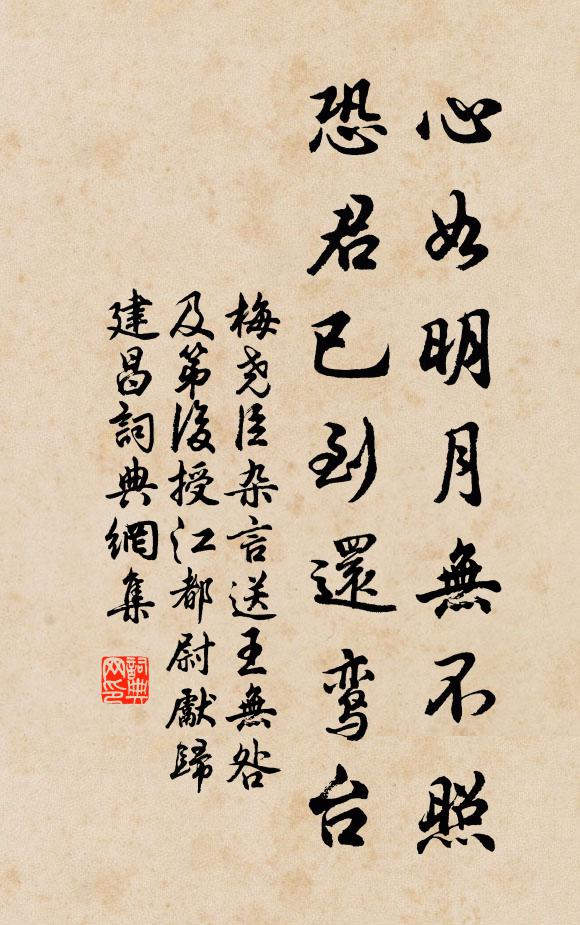 心如明月無不照
恐君已到還鸾台
梅尧臣杂言送王無咎
及第後授江都尉獻歸
建昌詞典網集
詞典网印